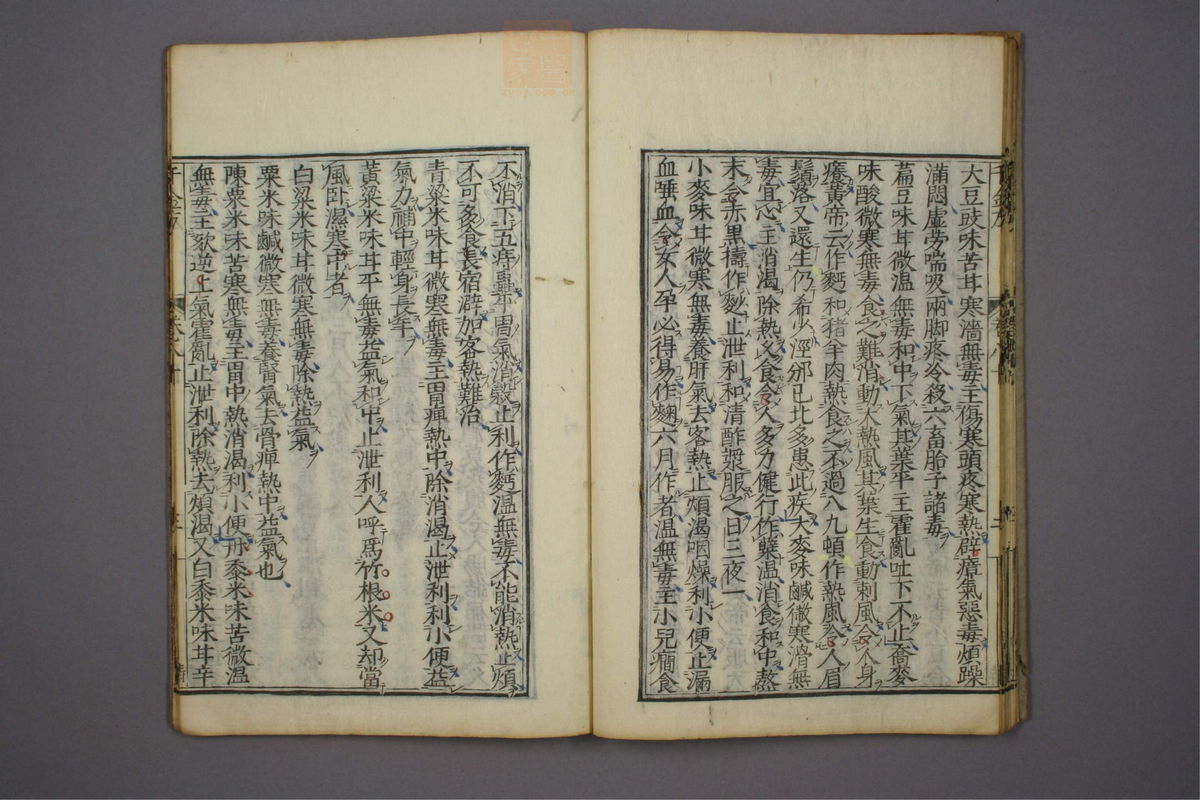 大豆豉味苦甘寒濇無毒主傷寒頭疼寒熱辟瘴氣惡毒煩躁
滿悶虛勞喘吸兩脚疼冷殺六畜胎子諸毒
藊豆味甘微溫無毒和中下氣其葉平主霍亂吐下不止喬麥
味酸微寒無毒食之難消動大熱風其葉生食動刺風令人身
癢黃帝云作麪和猪羊肉熱食之不過八九頓作熱風令人眉
鬚落又還生仍希少涇邠已北多患此疾大麥味鹹微寒滑無
毒宜心主消渴除熱久食令人多力健行作糱溫消食和中熬
末令赤黑擣作麨止泄利和清酢漿服之日三夜一
小麥味甘微寒無毒養肝氣去客熱止煩渴咽燥利小便止漏
血唾血令女人孕必得易作麴六月作者溫無毒主小兒癇食
不消下五痔蟲平胃氣消穀止利作麪溫無毒不能消熱止煩
不可多食長宿澼加客熱難治
青粱米味甘微寒無毒主胃痺熱中除消渴止泄利利小便益
氣力補中輕身長年
黃粱米味甘平無毒益氣和中止泄利人呼爲竹根米又却當
風卧濕寒中者
白粱米味甘微寒無毒除熱益氣
粟米味鹹微寒無毒養腎氣去骨痺熱中益氣也
陳粟米味苦寒無毒主胃中熱消渴利小便丹黍米味苦微溫
無毒主欬逆上氣霍亂止泄利除熱去煩渴又白黍米味甘辛